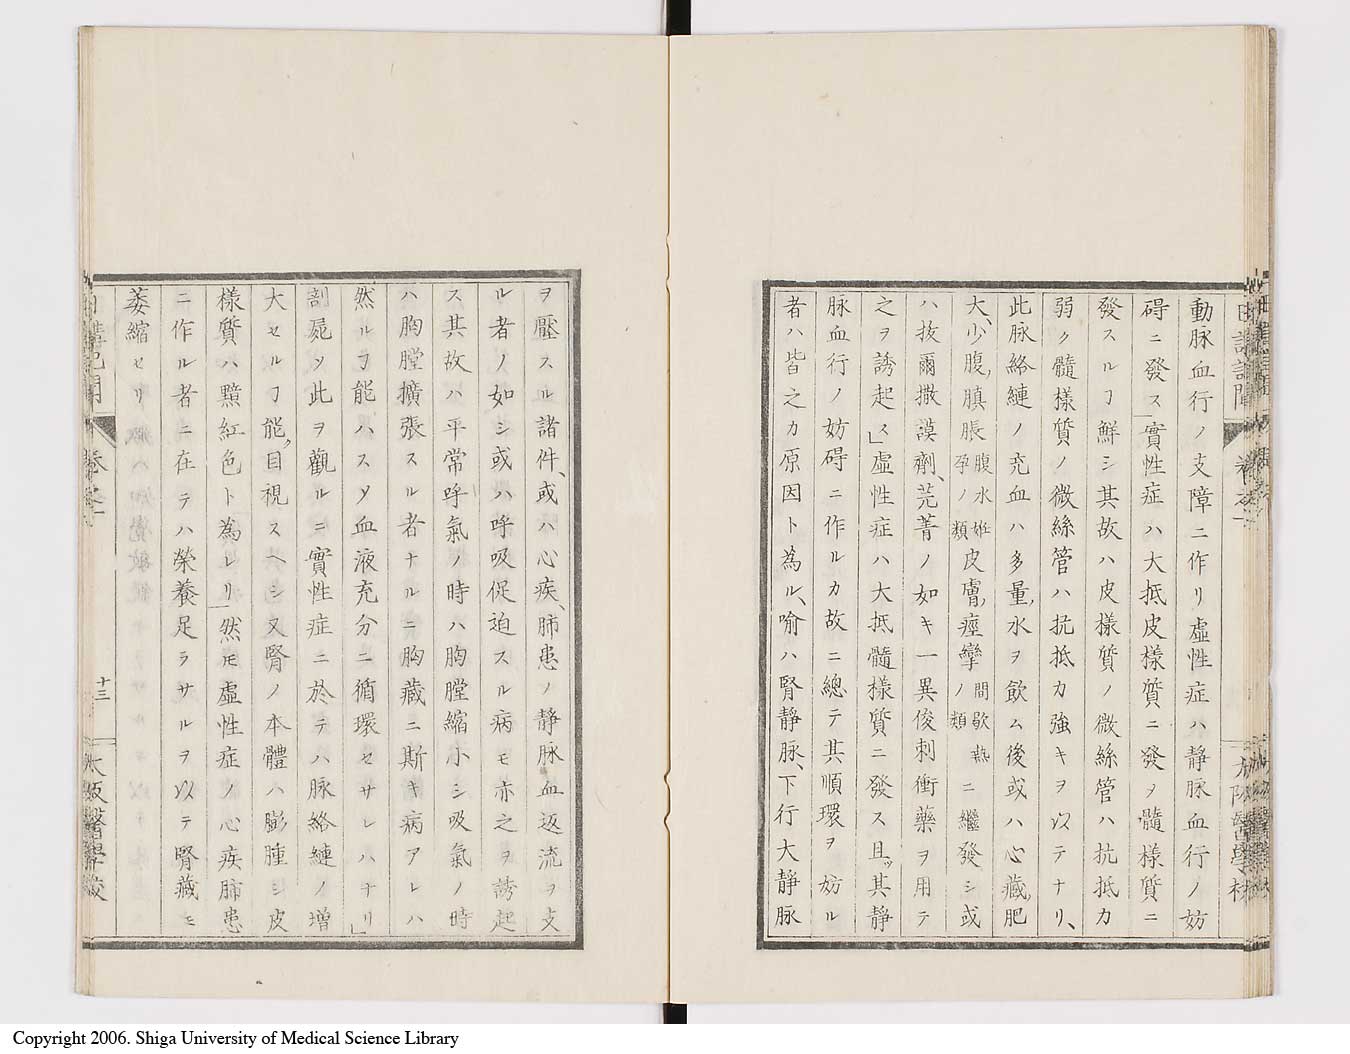 動脉血行ノ支障ニ作リ虛性症ハ靜脉血行ノ妨
碍ニ發ス「實性症ハ大抵皮樣質ニ發ヲ髓樣質ニ
發スルヿ鮮シ其故ハ皮樣質ノ微絲管ハ抗抵力
弱ク髓樣質ノ微絲管ハ抗抵力強キヲ以テナリ、
此脉絡縺ノ充血ハ多量、水ヲ飲ム後或ハ心藏、肥
大、少腹、膹脹腹水姙孕ノ類皮膚、痙攣ノ間歇熱類ニ繼發シ或
ハ拔爾撒謨劑、芫菁ノ如キ一異俊刺衝藥ヲ用テ
之ヲ誘起ス」虛性症ハ大抵髓樣質ニ發ス且ッ其靜
脉血行ノ妨碍ニ作ルカ故ニ總テ其順環ヲ妨ル
者ハ皆之カ原因ト為ル、喻ハ腎靜脉、下行大靜脉
ヲ壓スル諸件、或ハ心疾、肺患ノ靜脉血返流ヲ支
ル者ノ如シ或ハ呼吸促迫スル病モ亦之ヲ誘起
ス其故ハ平常呼氣ノ時ハ胸膛縮小シ吸氣ノ時
ハ胸膛擴張スル者ナルニ胸藏ニ斯キ病アレハ
然ルヿ能ハスメ血液充分ニ循環セサレハナリ」
剖屍ソ此ヲ觀ルニ實性症ニ於テハ脉絡縺ノ增
大セルヿ能、目視スヘシ又腎ノ本體ハ膨腫シ皮
樣質ハ黯紅色ト為レリ「然モ虛性症ノ心疾肺患
ニ作ル者ニ在テハ榮養足ラサルヲ以テ腎藏モ
萎縮セリ
日講記聞 卷之一 十三 大阪醫學校